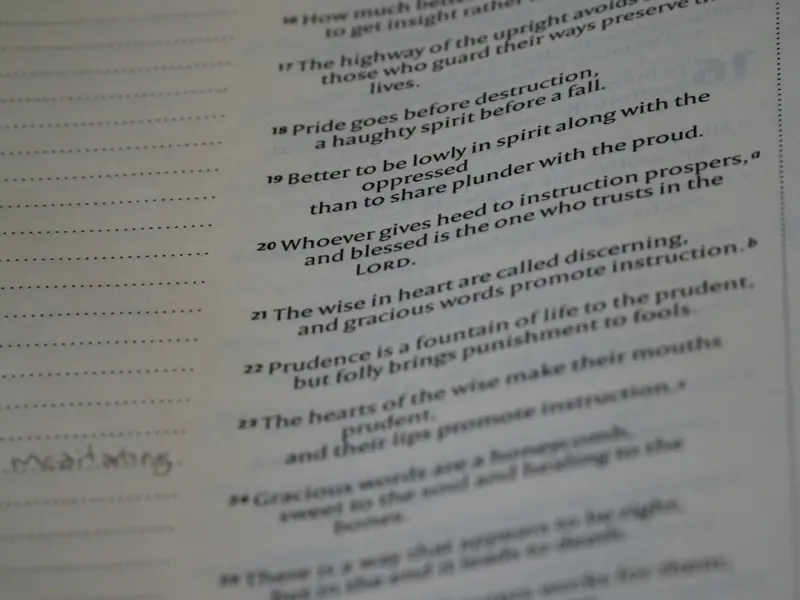 16 How much better
to get insight rather
17 The highway of the upright avoids
those who guard their ways preserve
lives.
18 Pride goes before destruction,
a haughty spirit before a fall.
19 Better to be lowly in spirit along with the
oppressed
than to share plunder with the proud.
20 Whoever gives heed to instruction prospers, a
and blessed is the one who trusts in the
LORD.
21 The wise in heart are called discerning,
and gracious words promote instruction. b
22 Prudence is a fountain of life to the prudent,
but folly brings punishment to fools.
23 The hearts of the wise make their mouths
prudent,
and their lips promote instruction. c
24 Gracious words are a honeycomb,
sweet to the soul and healing to the
bones.
25 There is a way that appears to be right,
but in the end it leads to death.
works for them;
16